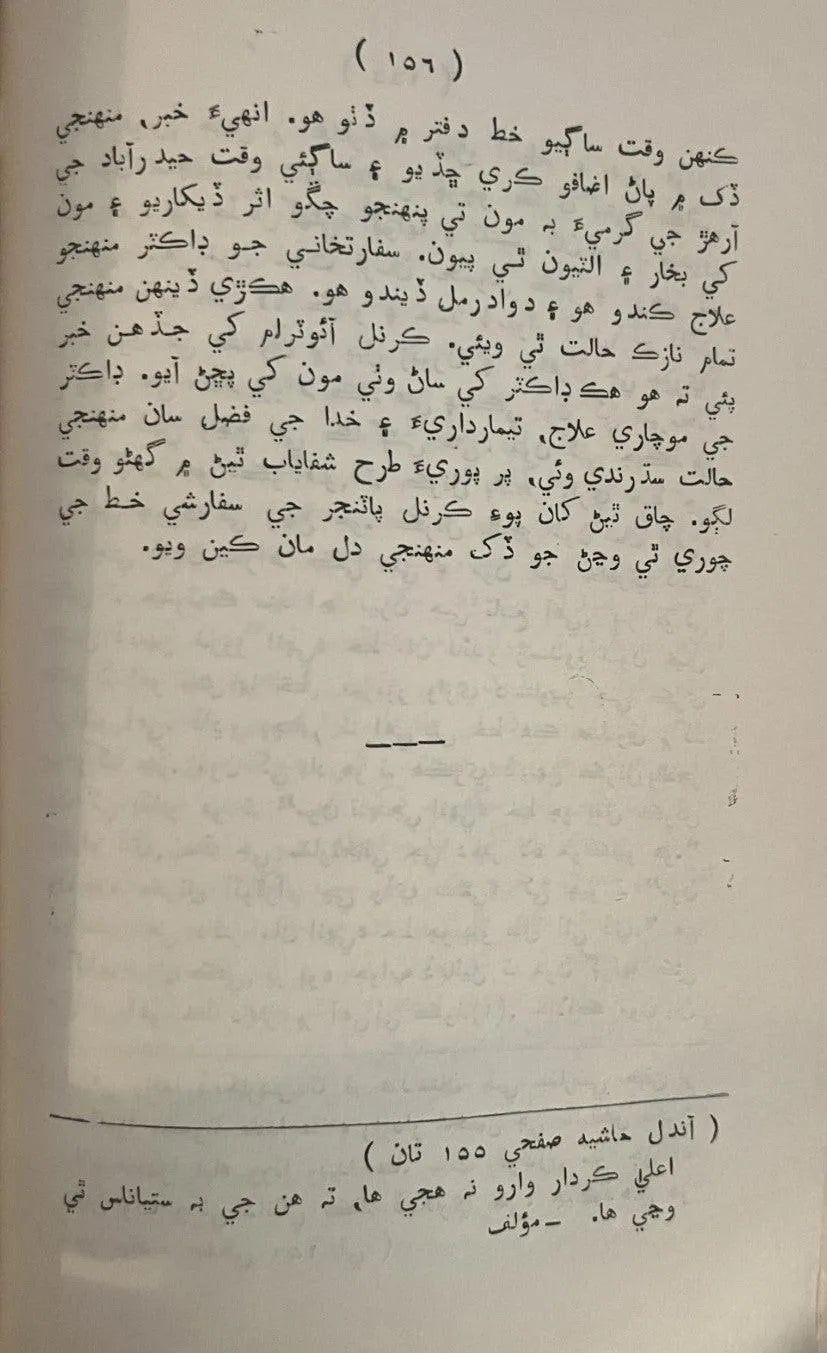 ( ١٥٦ )
ڪنهن وقت ساڳيو خط دفتر ۾ ڏٺو هو. انهيءَ خبر، منهنجي
ڏک ۾ پاڻ اضافو ڪري ڇڏيو ۽ ساڳئي وقت حيدرآباد جي
آرهڙ جي گرميءَ بہ مون تي پنهنجو چڱو اثر ڏيکاريو ۽ مون
کي بخار ۽ الٽيون ٿي پيون. سفارتخاني جو ڊاڪٽر منهنجو
علاج ڪندو هو ۽ دوادرمل ڏيندو هو. هڪڙي ڏينهن منهنجي
تمام نازڪ حالت ٿي ويئي. ڪرنل آئوٽرام کي جڏهن خبر
پئي تہ هو هڪ ڊاڪٽر کي ساڻ وٺي مون کي پڇڻ آيو. ڊاڪٽر
جي موچاري علاج، تيمارداريءَ ۽ خدا جي فضل سان منهنجي
حالت سڌرندي وئي، پر پوريءَ طرح شفاياب ٿيڻ ۾ گهڻو وقت
لڳو. چاق ٿيڻ کان پوءِ ڪرنل پاٽنجر جي سفارشي خط جي
چوري ٿي وڃڻ جو ڏک منهنجي دل مان ڪين ويو.
( آندل حاشيه صفحي ١٥٥ تان )
اعليٰ ڪردار وارو نہ هجي ها، تہ هن جي بہ ستياناس ٿي
وڃي ها. –مؤلف